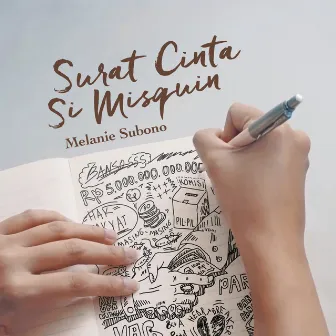 Surat Cinta
Si Misquin
Melanie Subono
BANGSA$$$
Rp 5.000.000.000.000
HAK
KOMISI
PIL-PIL
MASING-MASING
PAR